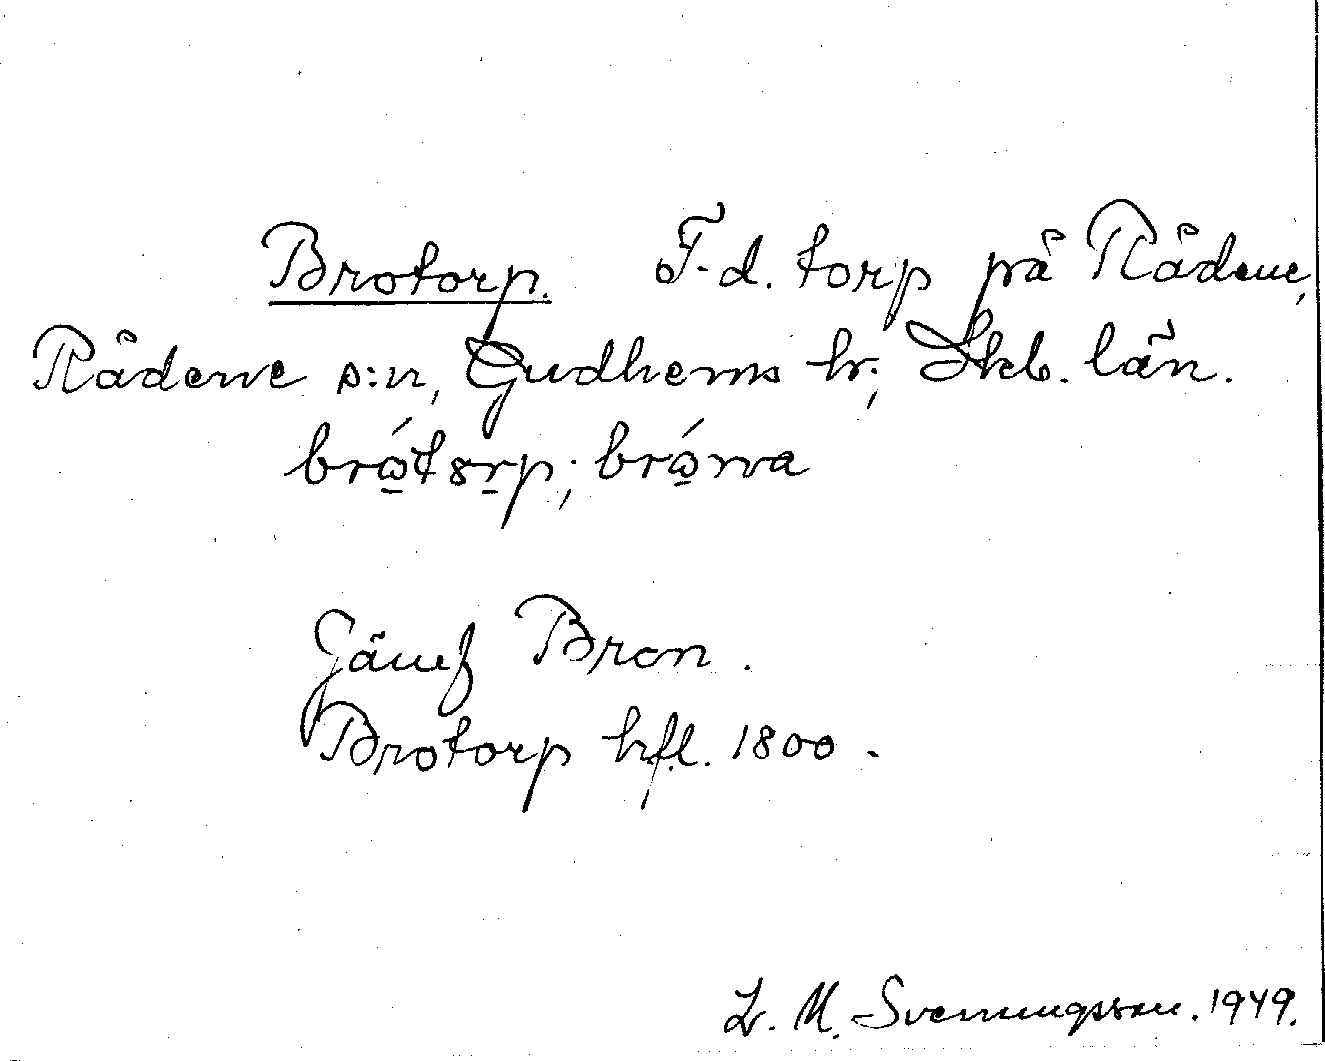 Brotorp. F.d. torp på Rådene,
Rådene s:n, Gudhems hr; Skb. län.
brώ̱tsṟp; brώ̱nva
Jämf Bron.
Brotorp hfl. 1800.
L. M. Svenungsson. 1949.